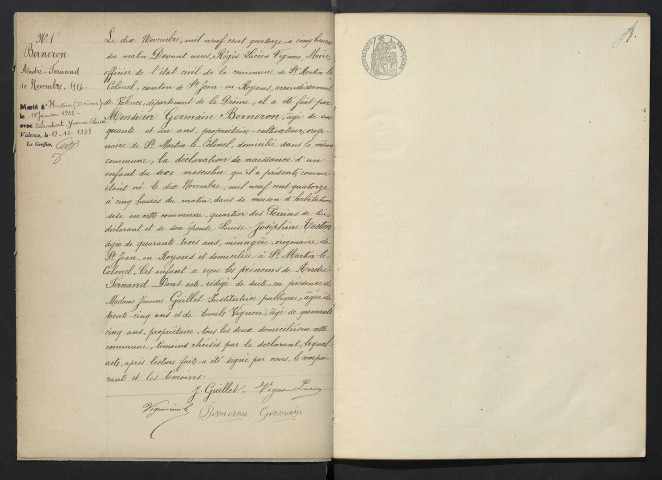 N° 1
Berneron
André-Fernand
10 Novembre, 1914.
Marié à
le janvier 1938
avec
Valence, le 1938
Le Greffier,
Le dix Novembre, mil neuf cent quatorze à cinq heures
du matin Devant nous, Régis Lucien Vignon, Maire
officier de l'état civil de la commune de St Martin le
Colonel, canton de St Jean en Royans, arrondissement
de Valence, département de la Drôme, il a été fait par
Monsieur Germain Berneron, âgé de cin
quante et un ans, propriétaire cultivateur, orig
inaire de St Martin le Colonel, domicilié dans la même
commune, la déclaration de naissance d'un
enfant du sexe masculin qu'il a présenté comme
étant né le dix Novembre, mil neuf cent quatorze
à cinq heures du matin, dans sa maison d'habitation
sise en cette commune quartier des de lui
déclarant et de son épouse Louise-Joséphine Teston
âgée de quarante trois ans, ménagère, originaire de
St Jean en Royans et domiciliée à St Martin-le-
Colonel; Cet enfant a reçu les prénoms de André
Fernand Dont acte, rédigé de suite, en présence de
Madame Jeanne Guillet Institutrice publique, âgée de
trente cinq ans et de Emile Vignon, âgé de quarante
cinq ans, propriétaire, tous les deux domiciliés en cette
commune, témoins choisis par le déclarant, lequel
acte, après lecture faite a été signé par nous, le compa
rant et les témoins.
J. Guillet Vignon
Berneron Germain